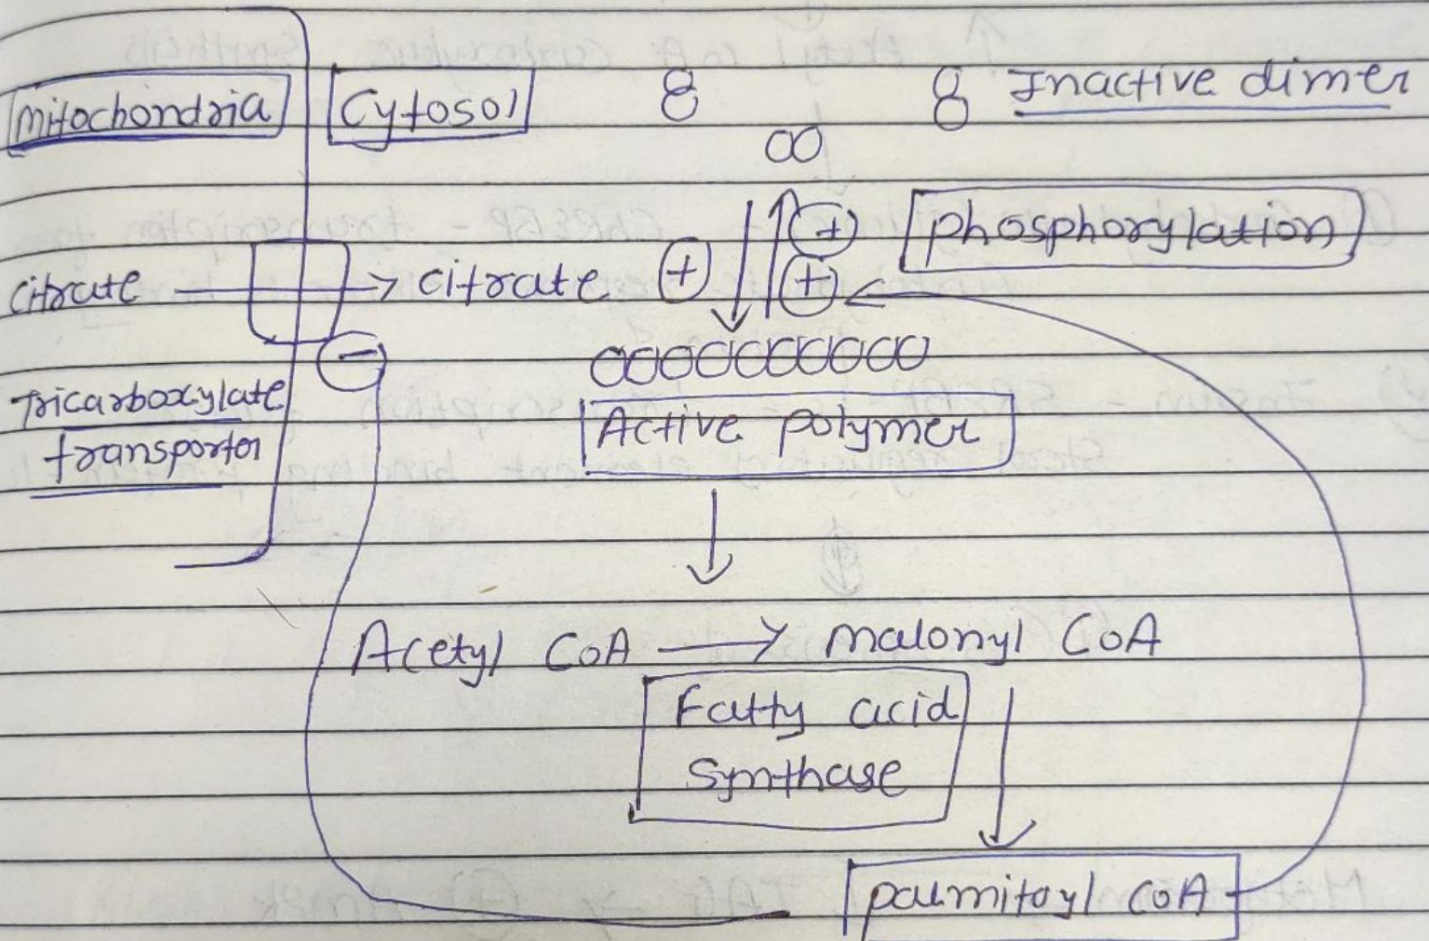 Mitochondria
Cytosol
Inactive dimer
phosphorylation
+
citrate → citrate + +
-
Tricarboxylate
transportor
Active polymer
Acetyl CoA → Malonyl CoA
Fatty acid
Synthase
palmitoyl CoA